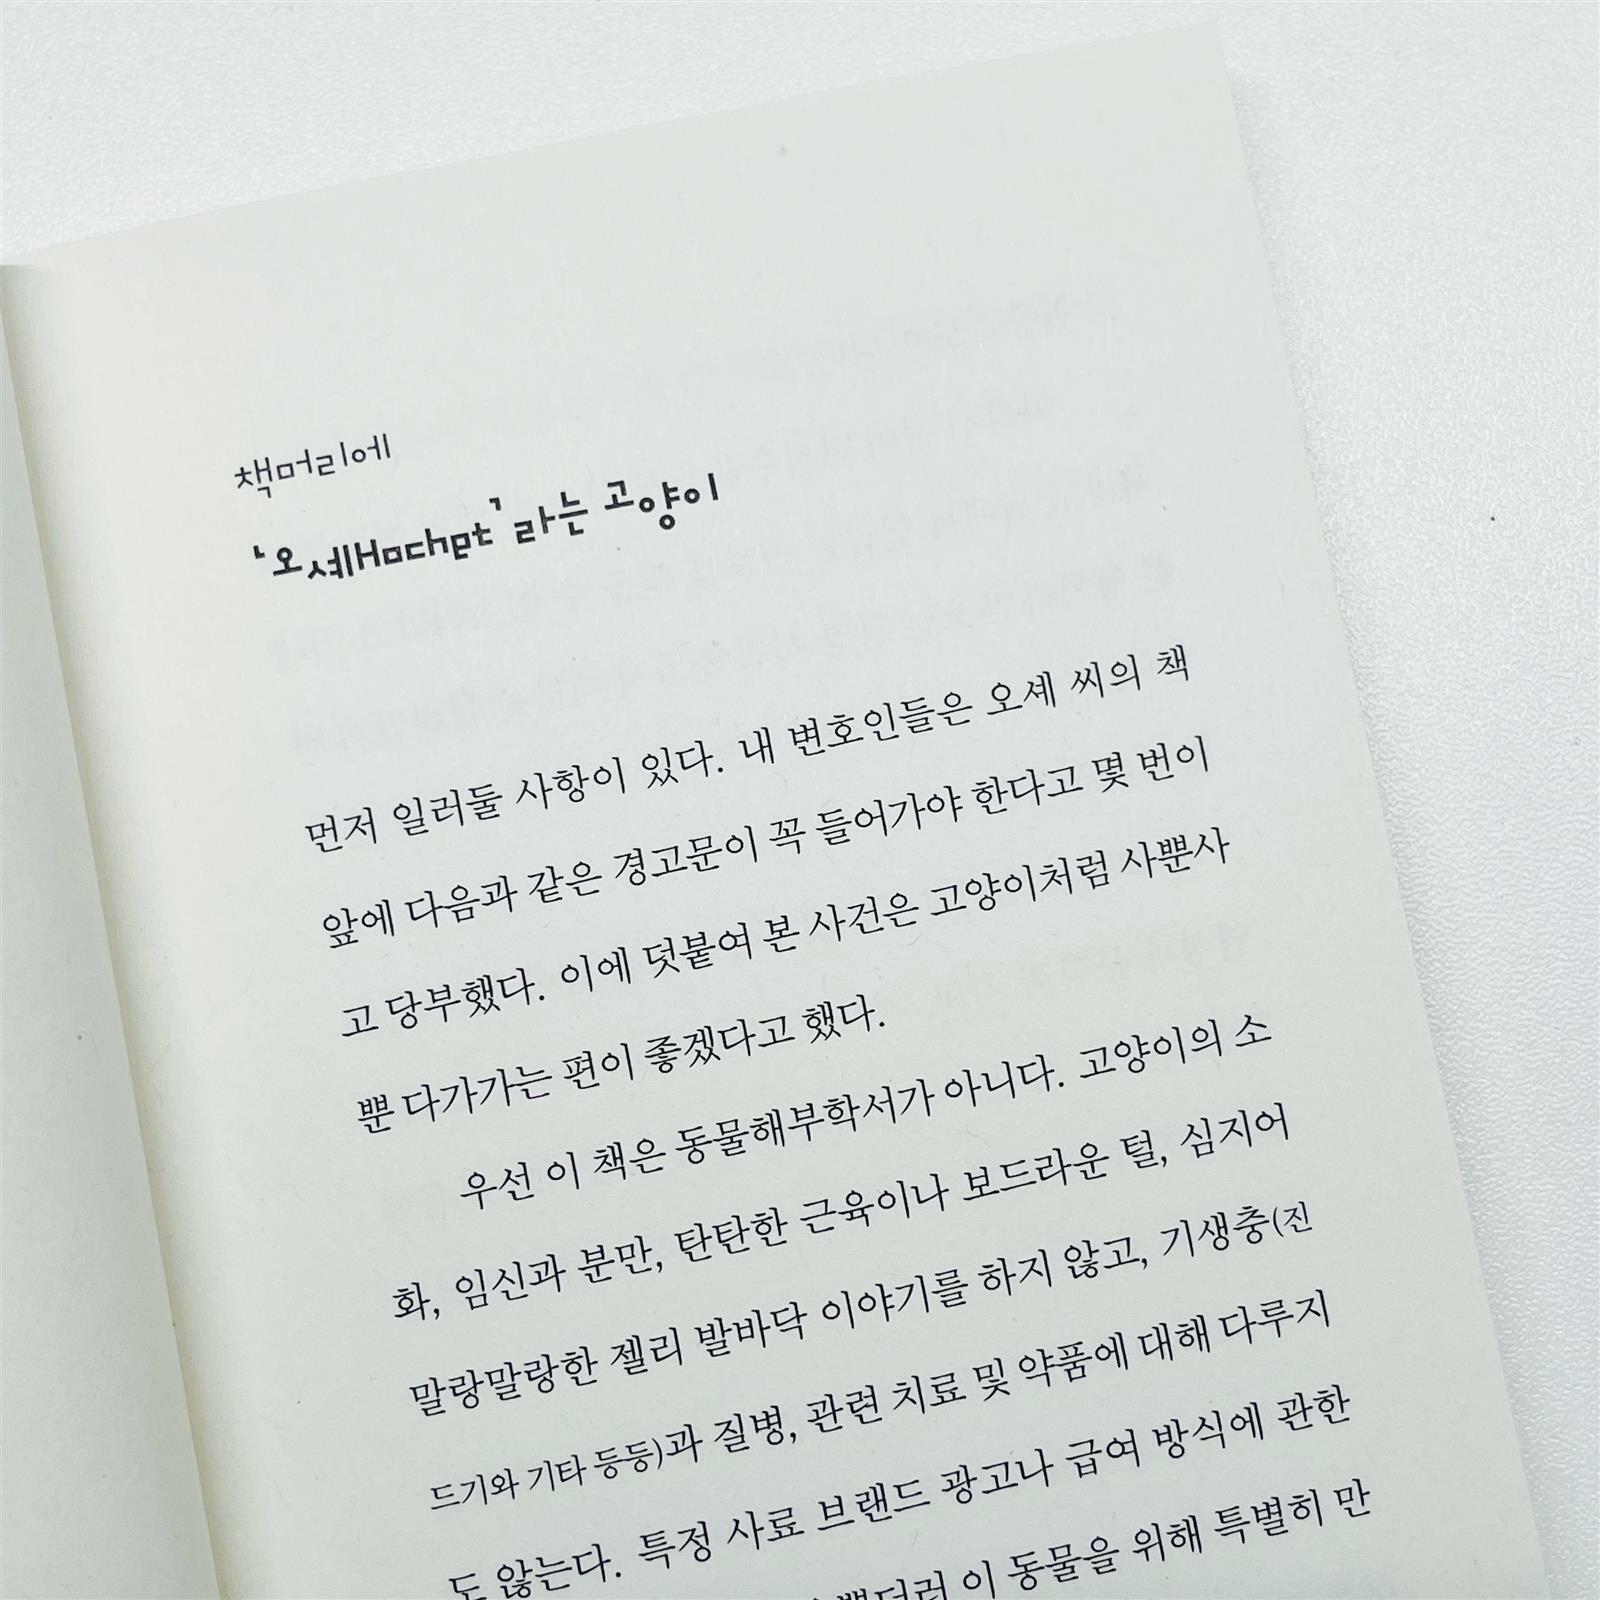 책머리에
‘오셰Hochet’라는 고양이
먼저 일러둘 사항이 있다. 내 변호인들은 오셰 씨의 책
앞에 다음과 같은 경고문이 꼭 들어가야 한다고 몇 번이
고 당부했다. 이에 덧붙여 본 사건은 고양이처럼 사뿐사
뿐 다가가는 편이 좋겠다고 했다.
우선 이 책은 동물해부학서가 아니다. 고양이의 소
화, 임신과 분만, 탄탄한 근육이나 보드라운 털, 심지어
말랑말랑한 젤리 발바닥 이야기를 하지 않고, 기생충(진
드기와 기타 등등)과 질병, 관련 치료 및 약품에 대해 다루지
도 않는다. 특정 사료 브랜드 광고나 급여 방식에 관한
이 동물을 위해 특별히 만